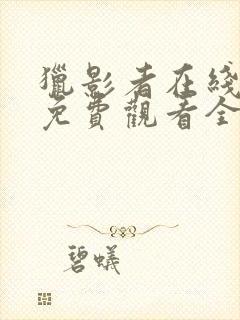 獵影者在綫
免費觀看全
碧蟻